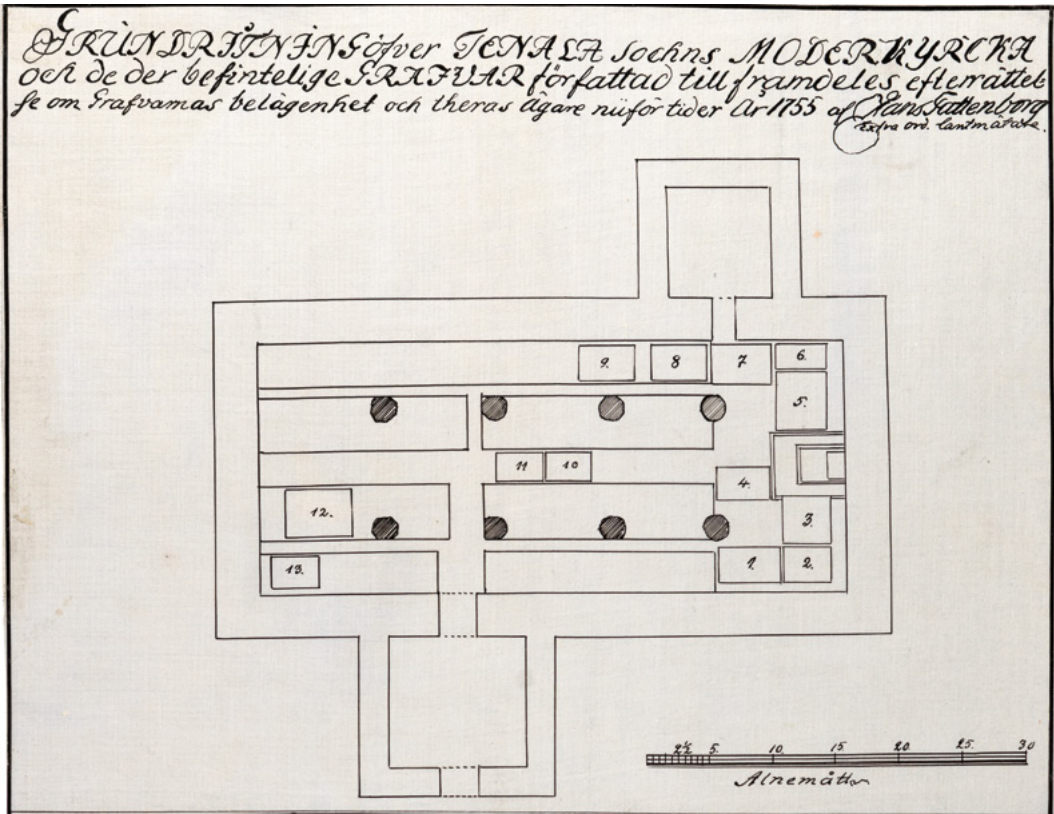 GRUNDRITNING öfver TENALA sochns MODERKYRCKA
och de der befintelige GRAFVAR författad till framdeles efterrättel
se om Grafvarnas belägenhet och theras Ägare nu för tider År 1755 af Hans Gattenborg
Extra ord. lantmätare.
9. 8 7 6.
5.
11 10
4.
12. 3.
13. 1. 2.
2½ 5. 10. 15. 20. 25. 30
Alnemått